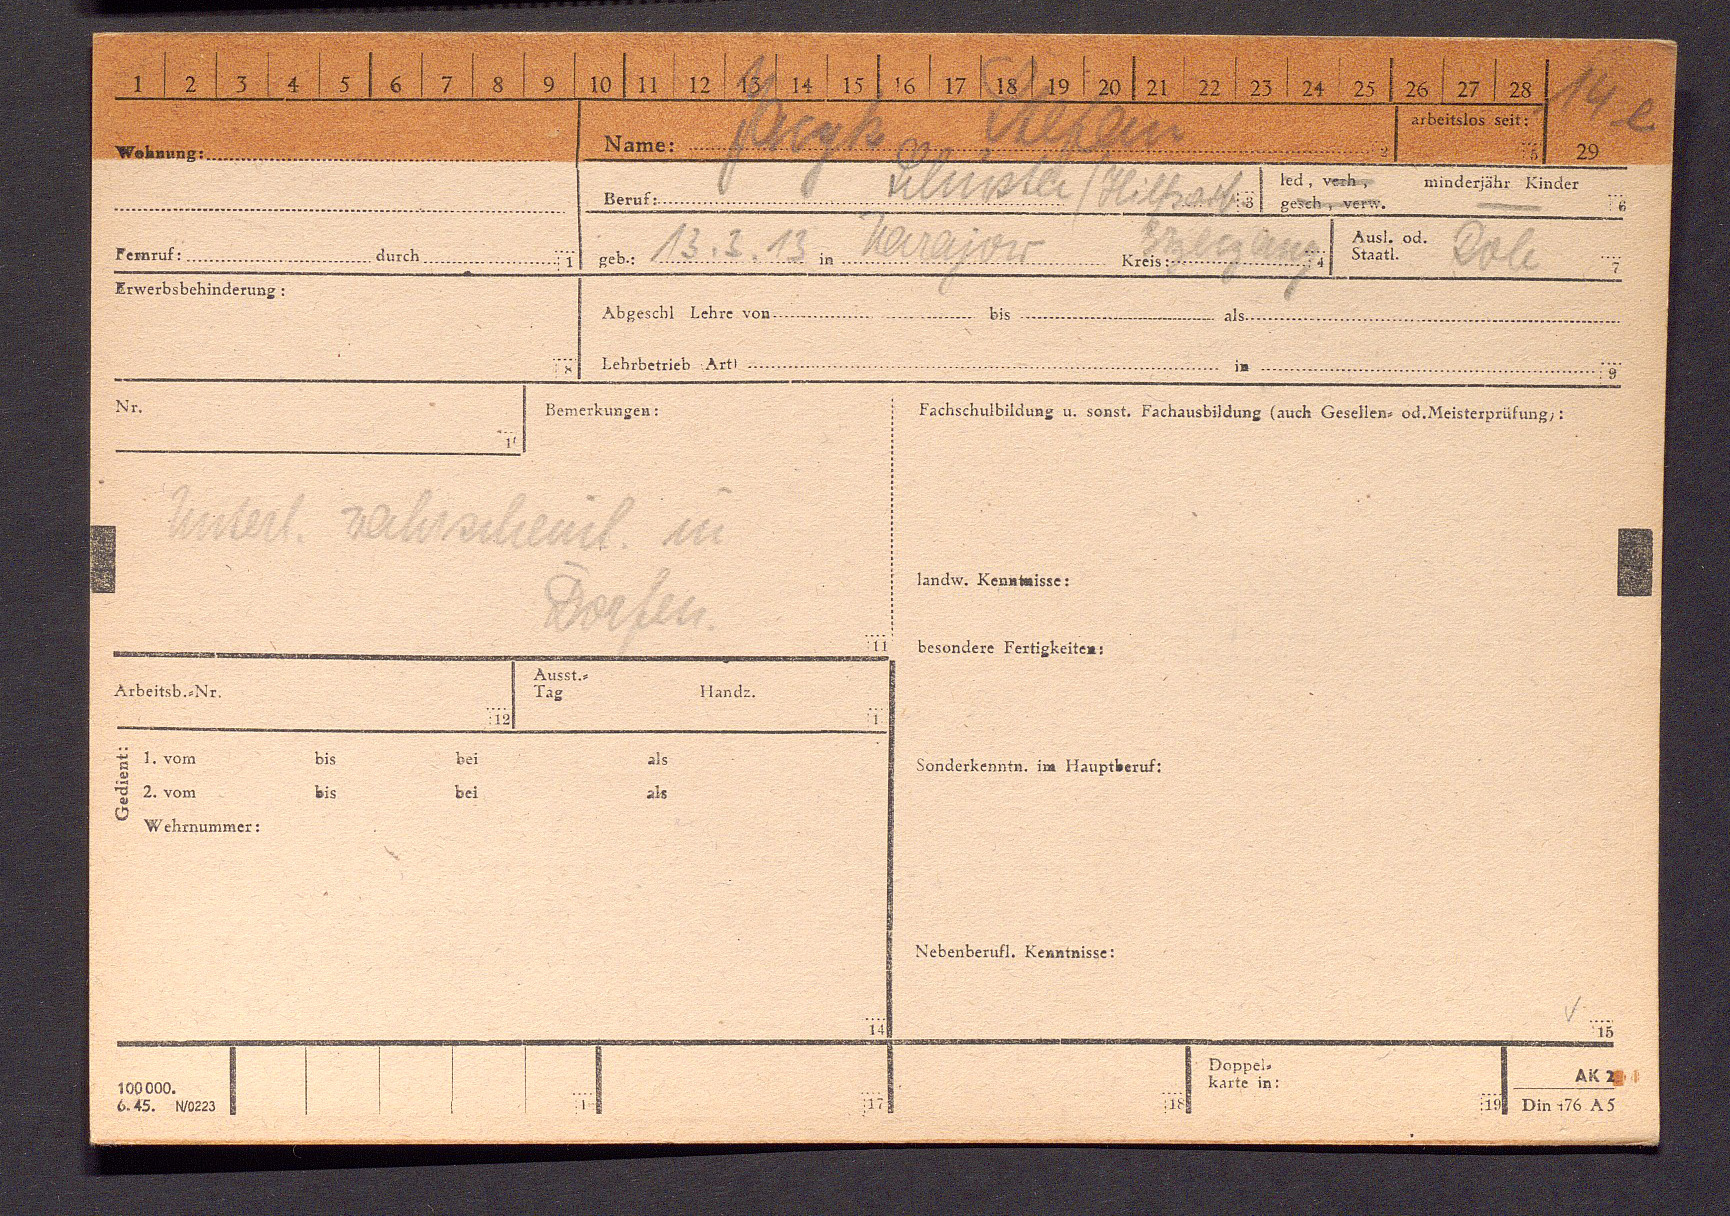 1 2 3 4 5 6 7 8 9 10 11 12 13 14 15 16 17 18 19 20 21 22 23 24 25 26 27 28
14 e
arbeitslos seit:
5
29
Wohnung:
Name: Jacyk Stefan
2
Beruf: Schuster / Hilfsarb.
3
led, verh, minderjähr Kinder —
gesch, verw.
6
Fernruf: durch
1
geb.: 13.3.13 in Karajow Kreis:
4
Ausl. od. Staatl. Pole
7
Erwerbsbehinderung:
8
Abgeschl Lehre von bis als
Lehrbetrieb Art in
9
Nr.
Bemerkungen:
Fachschulbildung u. sonst. Fachausbildung (auch Gesellen- od. Meisterprüfung):
Unterl. wahrscheinl. in
Dorfen.
11
landw. Kenntnisse:
besondere Fertigkeiten:
Arbeitsb.-Nr.
12
Ausst.-
Tag Handz.
1
Gedient:
1. vom bis bei als
2. vom bis bei als
Wehrnummer:
14
Sonderkenntn. im Hauptberuf:
Nebenberufl. Kenntnisse:
15
100000.
6.45. N/0223
17
18
Doppel-
karte in:
19
AK 2
Din 476 A5